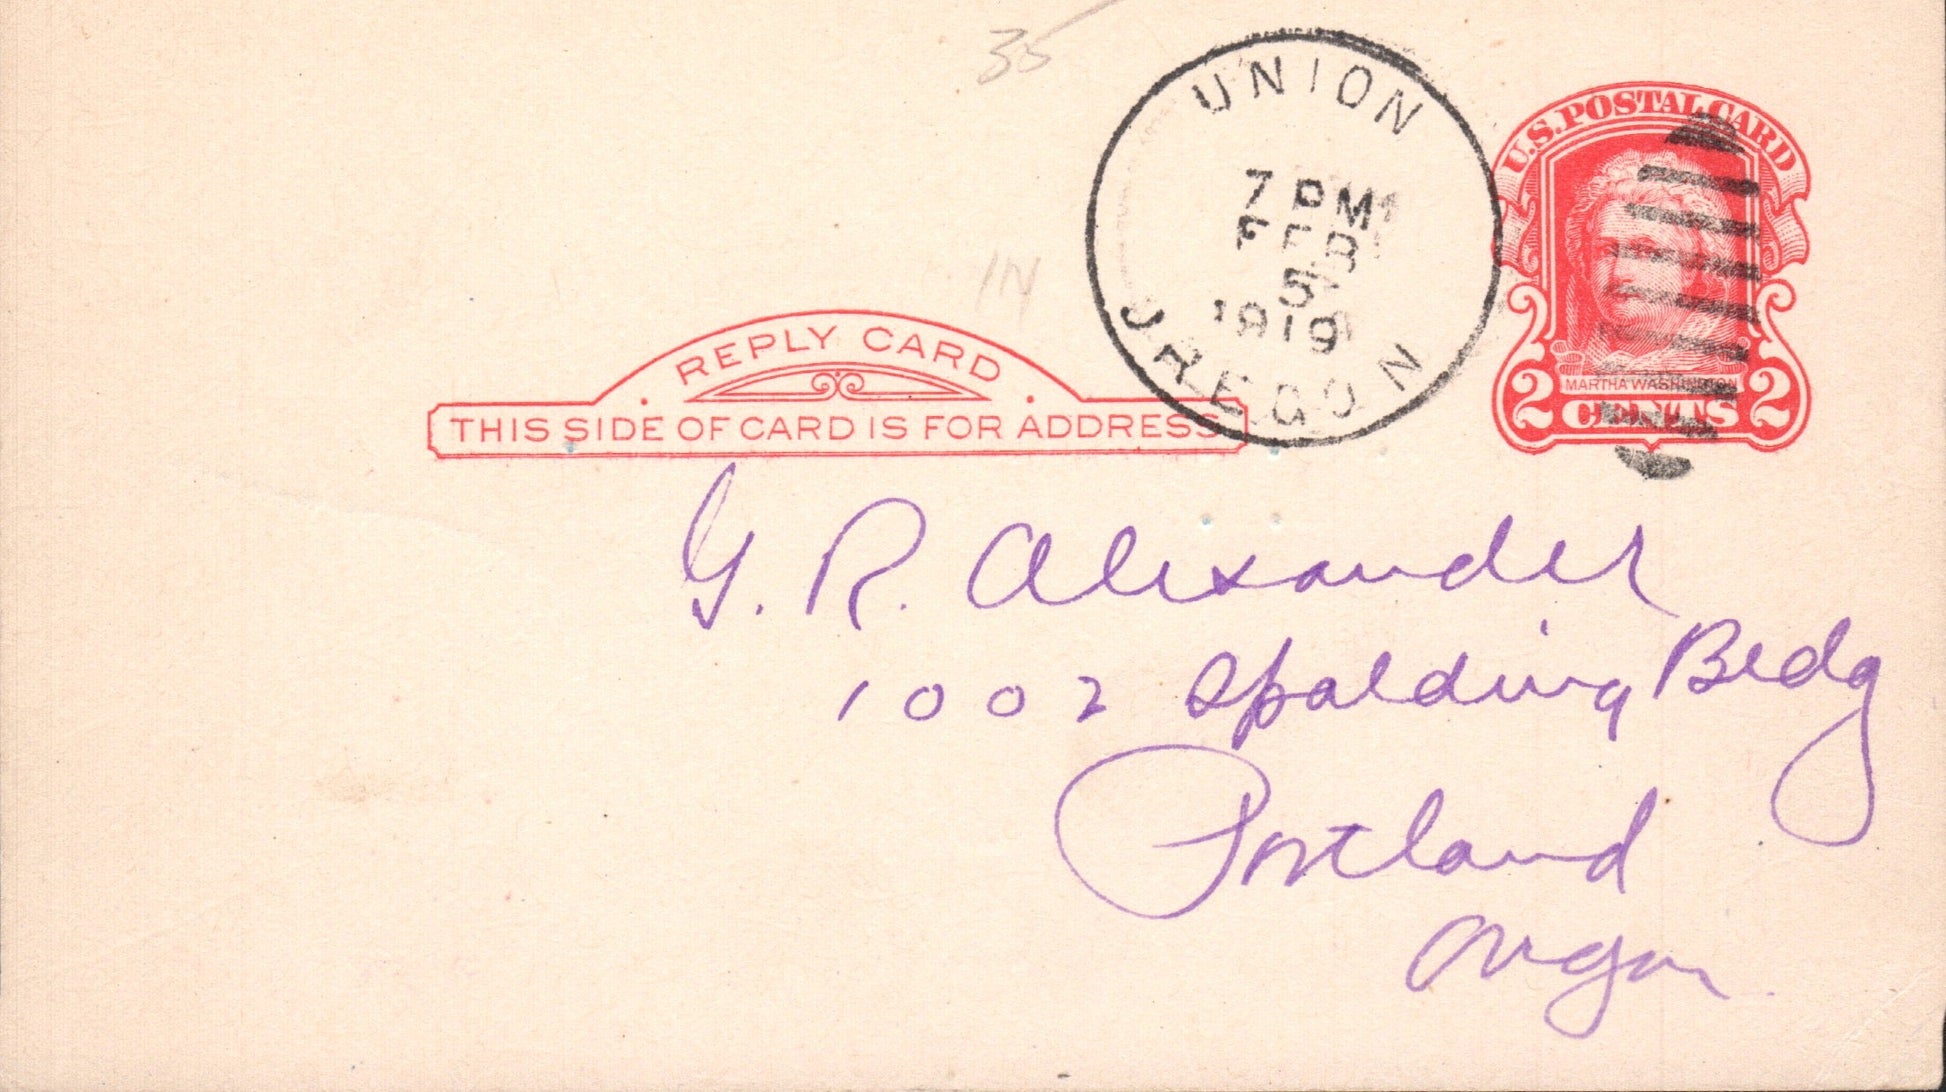 35
UNION
7 PM
FEB
5
1919
OREGON
U.S. POSTAL CARD
MARTHA WASHINGTON
2 CENTS 2
REPLY CARD
THIS SIDE OF CARD IS FOR ADDRESS
G. R. Alexander
1002 Spalding Bldg
Portland
Oregon